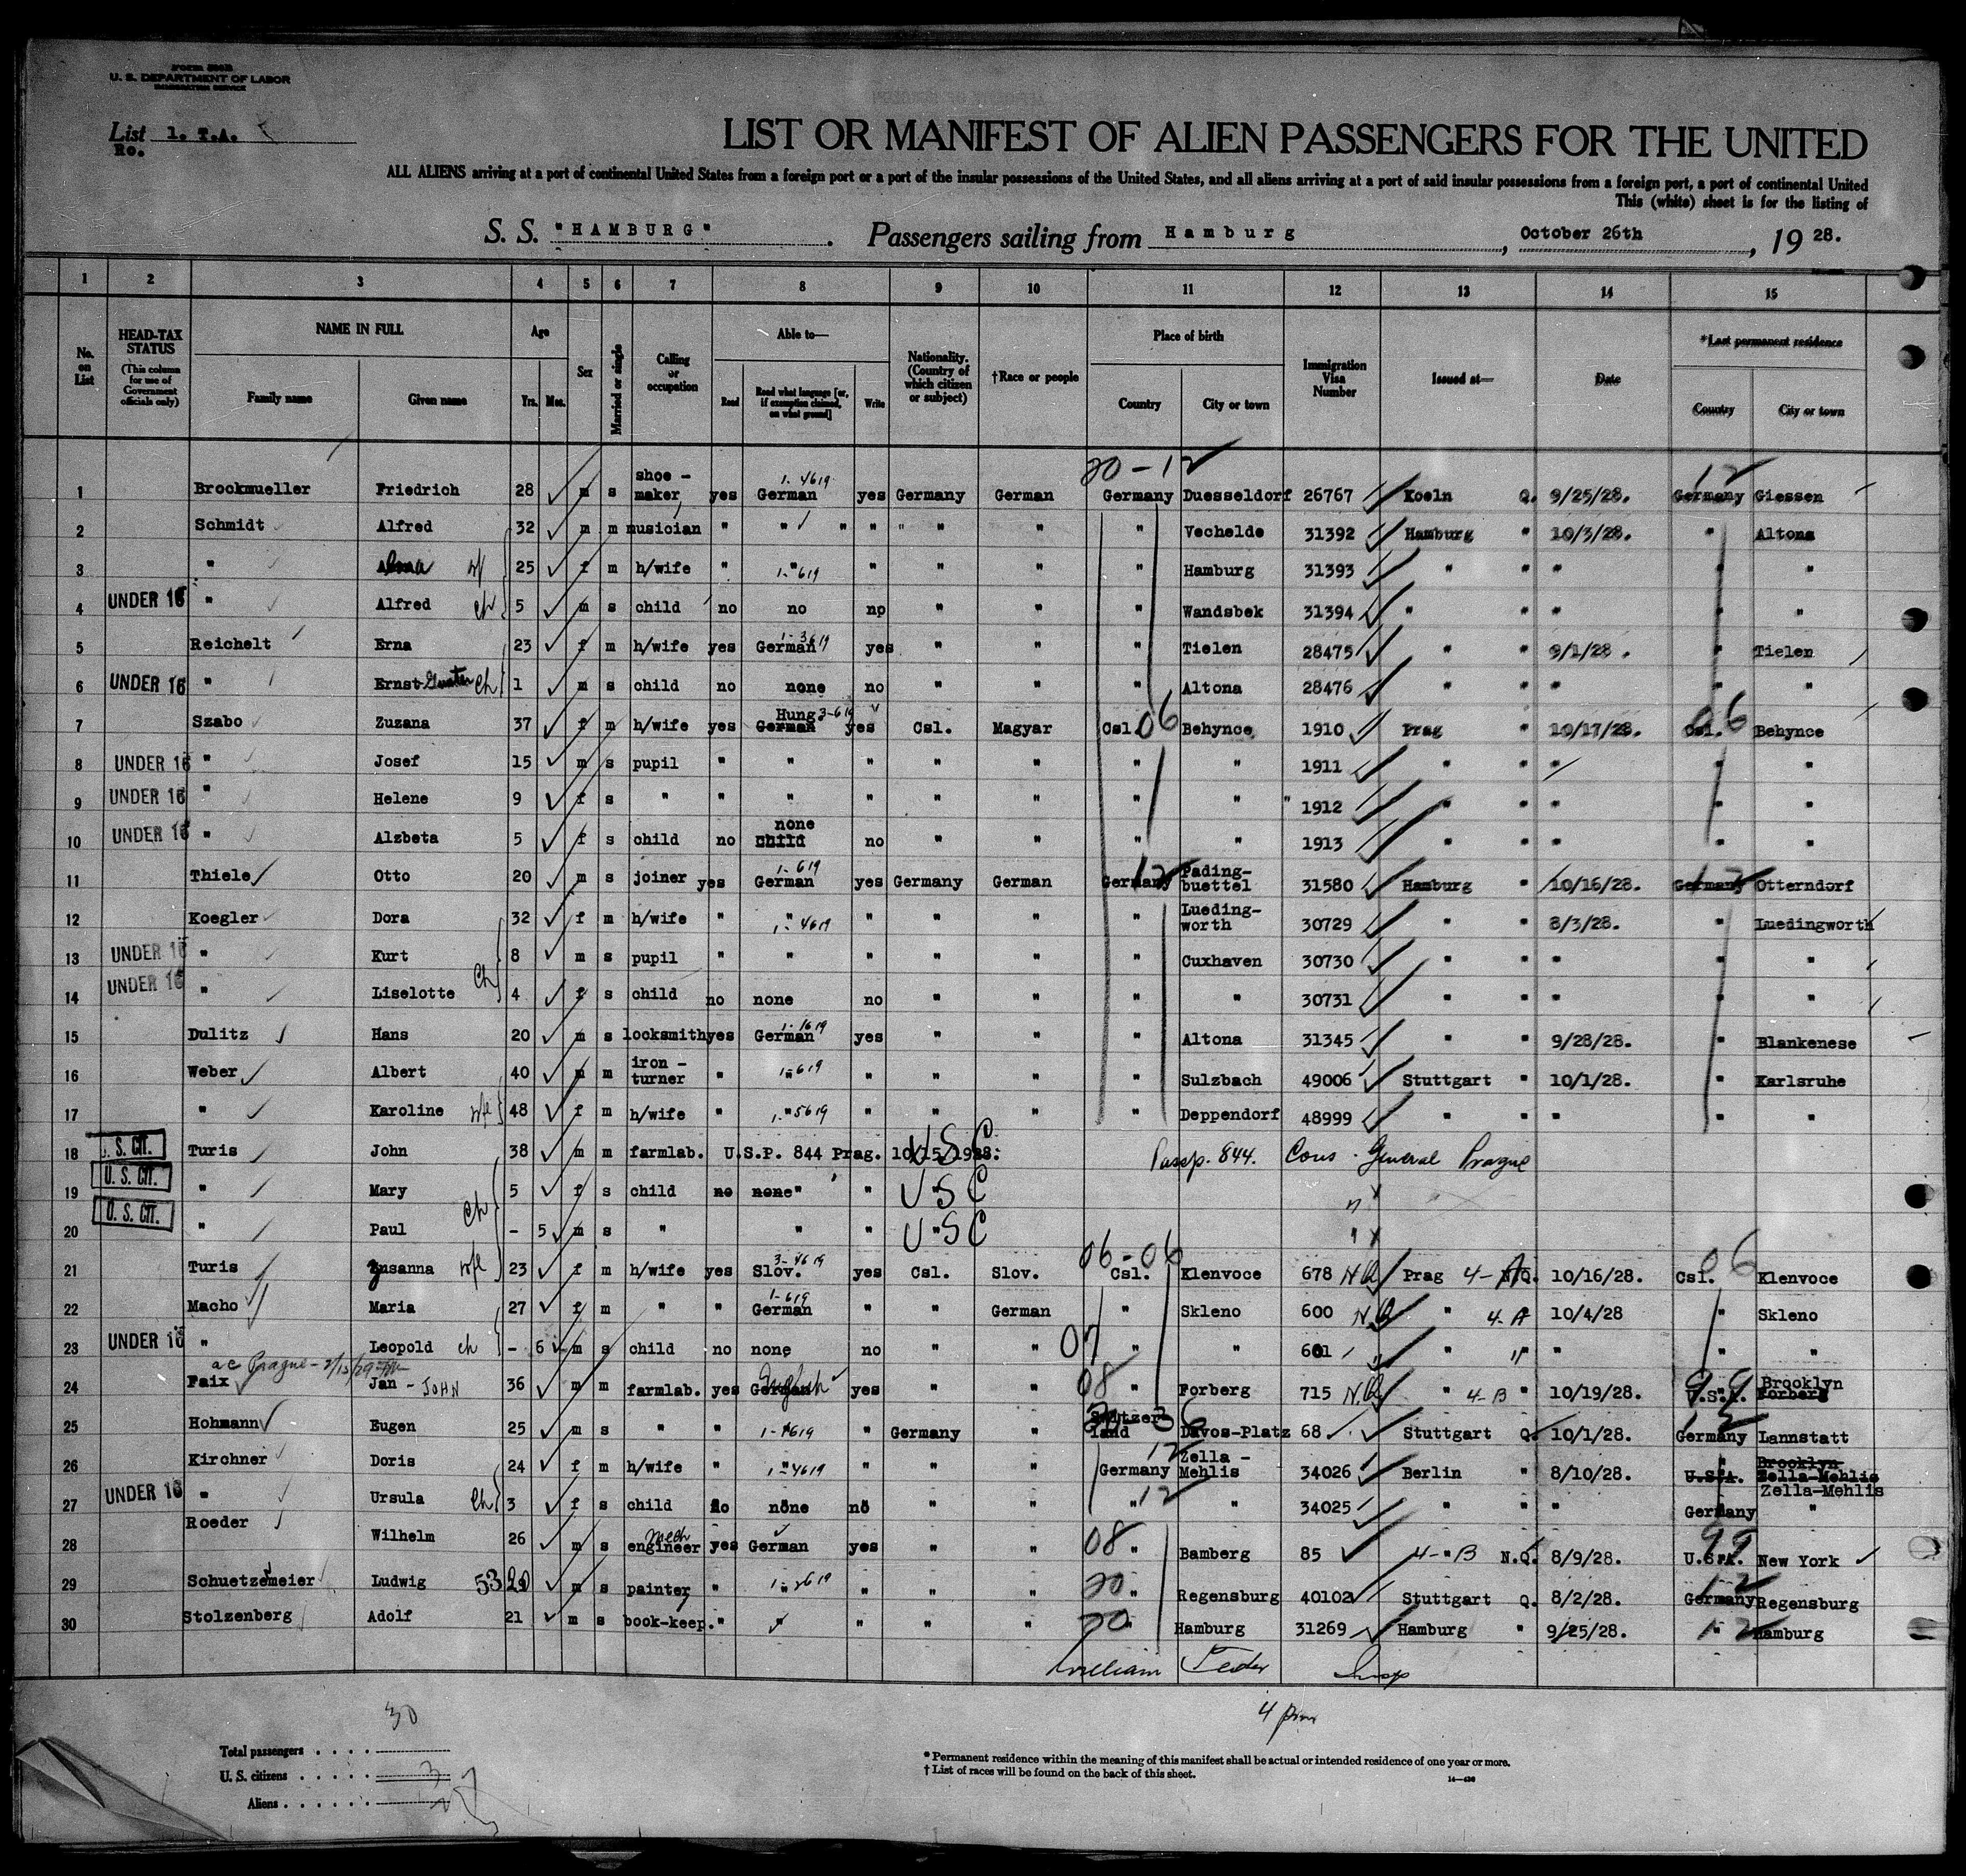 Form 500B
U. S. DEPARTMENT OF LABOR
IMMIGRATION SERVICE
List No. 1. T.A.
LIST OR MANIFEST OF ALIEN PASSENGERS FOR THE UNITED
ALL ALIENS arriving at a port of continental United States from a foreign port or a port of the insular possessions of the United States, and all aliens arriving at a port of said insular possessions from a foreign port, a port of continental United
This (white) sheet is for the listing of
S. S. "HAMBURG". Passengers sailing from Hamburg, October 26th, 1928.
1 2 3 4 5 6 7 8 9 10 11 12 13 14 15
No. on List
HEAD-TAX STATUS (This column for use of Government officials only)
NAME IN FULL Family name Given name
Age Yrs. Mos.
Sex
Married or single
Calling or occupation
Able to— Read Read what language [or, if exemption claimed, on what ground] Write
Nationality. (Country of which citizen or subject)
†Race or people
Place of birth Country City or town
Immigration Visa Number
Issued at—
Date
*Last permanent residence Country City or town
20-12 12
1 Brockmueller Friedrich 28 m s shoe - maker yes German 1- 4619 yes Germany German Germany Duesseldorf 26767 Koeln Q. 9/25/28. Germany Giessen
2 Schmidt Alfred 32 m m musician " " " " " " " " Vechelde 31392 Hamburg " 10/3/28. " Altona
3 " wf 25 f m h/wife " 1-"619 " " " " Hamburg 31393 " " " " "
4 UNDER 16 " Alfred ch 5 m s child no no np " " " Wandsbek 31394 " " " " "
5 Reichelt Erna 23 f m h/wife yes German 1-3619 yes " " " Tielen 28475 " " 9/1/28. " Tielen
6 UNDER 16 " Ernst Gunter Ch 1 m s child no none no " " " Altona 28476 " " " " "
7 Szabo Zuzana 37 f m h/wife yes Hung. German 3-619 yes Csl. Magyar Csl. 06 Behynce 1910 Prag " 10/17/28. Csl. 06 Behynce
8 UNDER 16 " Josef 15 m s pupil " " " " " " " 1911 " " " " "
9 UNDER 16 " Helene 9 f s " " " " " " " " " 1912 " " " " "
10 UNDER 16 " Alzbeta 5 f s child no none child no " " " " 1913 " " " " "
11 Thiele Otto 20 m s joiner yes German 1-619 yes Germany German Germany 12 Pading-buettel 31580 Hamburg " 10/16/28. Germany 12 Otterndorf
12 Koegler Dora 32 f m h/wife " " 1-4619 " " " " Lueding-worth 30729 " " 8/3/28. " Luedingworth
13 UNDER 16 " Kurt 8 m s pupil " " " " " " Cuxhaven 30730 " " " " "
14 UNDER 16 " Liselotte Ch 4 f s child no none no " " " " 30731 " " " " "
15 Dulitz Hans 20 m s locksmith yes German 1-1619 yes " " " Altona 31345 " " 9/28/28. " Blankenese
16 Weber Albert 40 m m iron - turner " 1-"619 " " " " Sulzbach 49006 Stuttgart " 10/1/28. " Karlsruhe
17 " Karoline wfe 48 f m h/wife " 1-"5619 " " " " Deppendorf 48999 " " " " "
18 U. S. CIT. Turis John 38 m m farmlab. U.S.P. 844 Prag. 10/15/1928. USC Passp. 844. Cons. General Prague
19 U. S. CIT. " Mary Ch 5 f s child no none" " USC " "
20 U. S. CIT. " Paul - 5 m s " " " USC " "
21 Turis Zusanna wfe 23 f m h/wife yes Slov. 3-4619 yes Csl. Slov. 06-06 Csl. Klenvoce 678 NQ Prag 4-A N.Q. 10/16/28. Csl. 06 Klenvoce
22 Macho Maria 27 f m " " German 1-619 " " German " Skleno 600 N.Q " 4-A 10/4/28 " Skleno
23 UNDER 16 " Leopold ch - 6 m s child no none no " " 07 " " 601 " " " " " "
ac Prague - 2/15/29
24 Faix Jan - JOHN 36 m m farmlab. yes German English yes " " 08 " Forberg 715 N.Q " 4-B " 10/19/28. U.S.A. 99 Brooklyn Forberg
25 Hohmann Eugen 25 m s " " 1-4619 " Germany " Switzerland 36 Davos-Platz 68 Stuttgart Q. 10/1/28. Germany 12 Lannstatt
26 Kirchner Doris 24 f m h/wife " 1-"4619 " " " Germany 12 Zella - Mehlis 34026 Berlin " 8/10/28. U.S.A. Brooklyn Zella-Mehlis
27 UNDER 16 " Ursula Ch 3 f s child no none no " " " 12 " 34025 " " " Germany Zella-Mehlis "
28 Roeder Wilhelm 26 m s mech engineer yes German yes " " 08 " Bamberg 85 4-"B N.Q. 8/9/28. U.S.A. 99 New York
29 Schuetzemeier Ludwig 53 m s painter " 1-"2619 " " " 20 " Regensburg 40102 Stuttgart Q. 8/2/28. Germany 12 Regensburg
30 Stolzenberg Adolf 21 m s book-keep. " " " " " 20 " Hamburg 31269 Hamburg " 9/25/28. " 12 Hamburg
William Insp
30
4 pm
Total passengers . . . .
U. S. citizens . . . . . 3
Aliens . . . . . .
* Permanent residence within the meaning of this manifest shall be actual or intended residence of one year or more.
† List of races will be found on the back of this sheet.
14—430